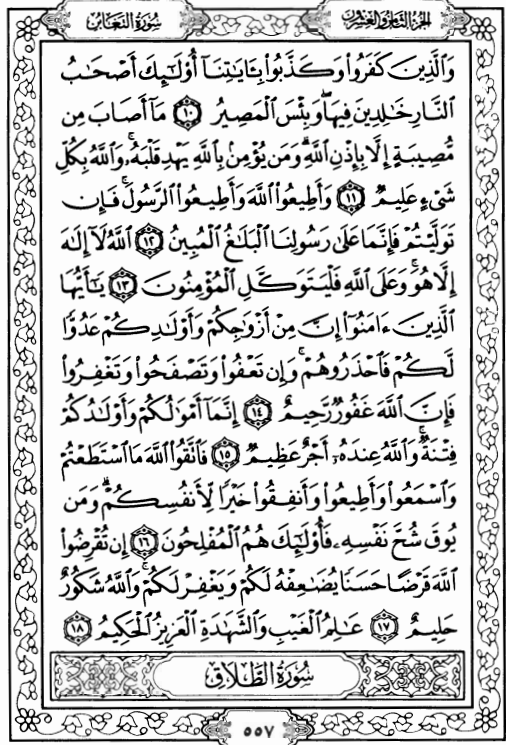 سُورَةُ التَّغَابُنِ الجُزْءُ الثَّامِنُ وَالعِشْرُونَ
وَالَّذِينَ كَفَرُواْ وَكَذَّبُواْ بِـَٔايَٰتِنَآ أُوْلَٰٓئِكَ أَصْحَٰبُ
النَّارِ خَٰلِدِينَ فِيهَاۖ وَبِئْسَ الْمَصِيرُ ١٠ مَآ أَصَابَ مِن
مُّصِيبَةٍ إِلَّا بِإِذْنِ اللَّهِۗ وَمَن يُؤْمِنۢ بِاللَّهِ يَهْدِ قَلْبَهُۥۚ وَاللَّهُ بِكُلِّ
شَىْءٍ عَلِيمٌ ١١ وَأَطِيعُواْ اللَّهَ وَأَطِيعُواْ الرَّسُولَۚ فَإِن
تَوَلَّيْتُمْ فَإِنَّمَا عَلَىٰ رَسُولِنَا الْبَلَٰغُ الْمُبِينُ ١٢ اللَّهُ لَآ إِلَٰهَ
إِلَّا هُوَۚ وَعَلَى اللَّهِ فَلْيَتَوَكَّلِ الْمُؤْمِنُونَ ١٣ يَٰٓأَيُّهَا
الَّذِينَ ءَامَنُوٓاْ إِنَّ مِنْ أَزْوَٰجِكُمْ وَأَوْلَٰدِكُمْ عَدُوًّا
لَّكُمْ فَاحْذَرُوهُمْۚ وَإِن تَعْفُواْ وَتَصْفَحُواْ وَتَغْفِرُواْ
فَإِنَّ اللَّهَ غَفُورٌ رَّحِيمٌ ١٤ إِنَّمَآ أَمْوَٰلُكُمْ وَأَوْلَٰدُكُمْ
فِتْنَةٌۚ وَاللَّهُ عِندَهُۥٓ أَجْرٌ عَظِيمٌ ١٥ فَاتَّقُواْ اللَّهَ مَا اسْتَطَعْتُمْ
وَاسْمَعُواْ وَأَطِيعُواْ وَأَنفِقُواْ خَيْرًا لِّأَنفُسِكُمْۗ وَمَن
يُوقَ شُحَّ نَفْسِهِۦ فَأُوْلَٰٓئِكَ هُمُ الْمُفْلِحُونَ ١٦ إِن تُقْرِضُواْ
اللَّهَ قَرْضًا حَسَنًا يُضَٰعِفْهُ لَكُمْ وَيَغْفِرْ لَكُمْۚ وَاللَّهُ شَكُورٌ
حَلِيمٌ ١٧ عَٰلِمُ الْغَيْبِ وَالشَّهَٰدَةِ الْعَزِيزُ الْحَكِيمُ ١٨
سُورَةُ الطَّلَاقِ
٥٥٧